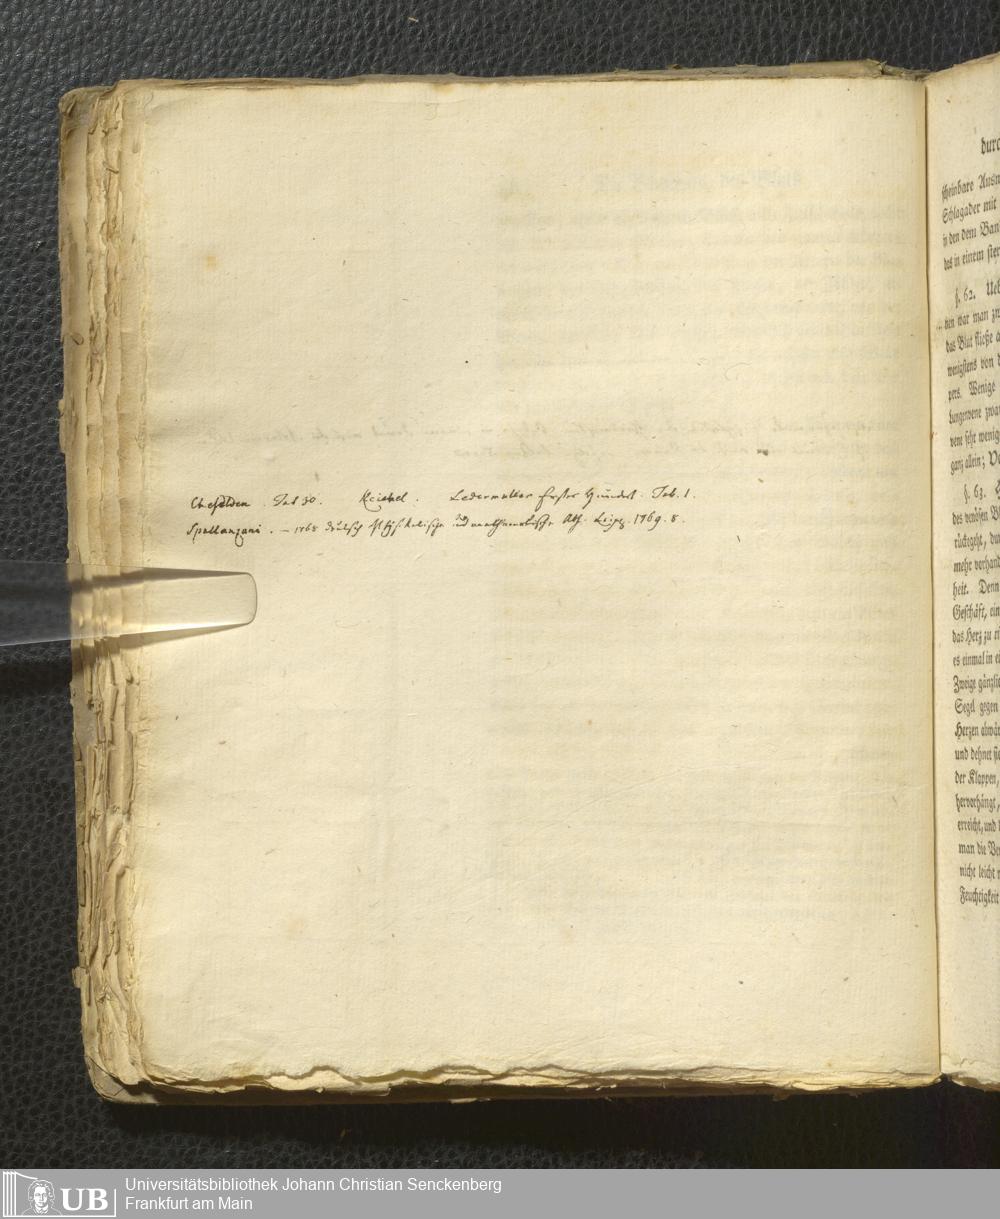 Cheselden. Tab 30. Reichel. Ledermuller erster Hundert. Tab. 1.
Spallanzani. – 1768 deutsch physikalische und mathematische Abh. Leipz. 1769. 8.
durc
scheinbare Ausm
Schlagader mit
in den dem Ban
das in einem ster
§. 62. Ueb
ten war man zw
das Blut fließe a
wenigstens von d
pers. Wenige
lungenvene zwar
vene sehr wenig
ganz allein; Vo
§. 63.
des venösen Bl
rückgeht, dur
mehr vorhand
heit. Denn
Geschäft, ein
das Herz zu ei
es einmal in ei
Zweige gänzlic
Segel gegen
Herzen abwär
und dehnet sic
der Klappen,
hervorhängt,
erreicht, und
man die Ver
nicht leicht
Feuchtigkeit
UB
Universitätsbibliothek Johann Christian Senckenberg
Frankfurt am Main